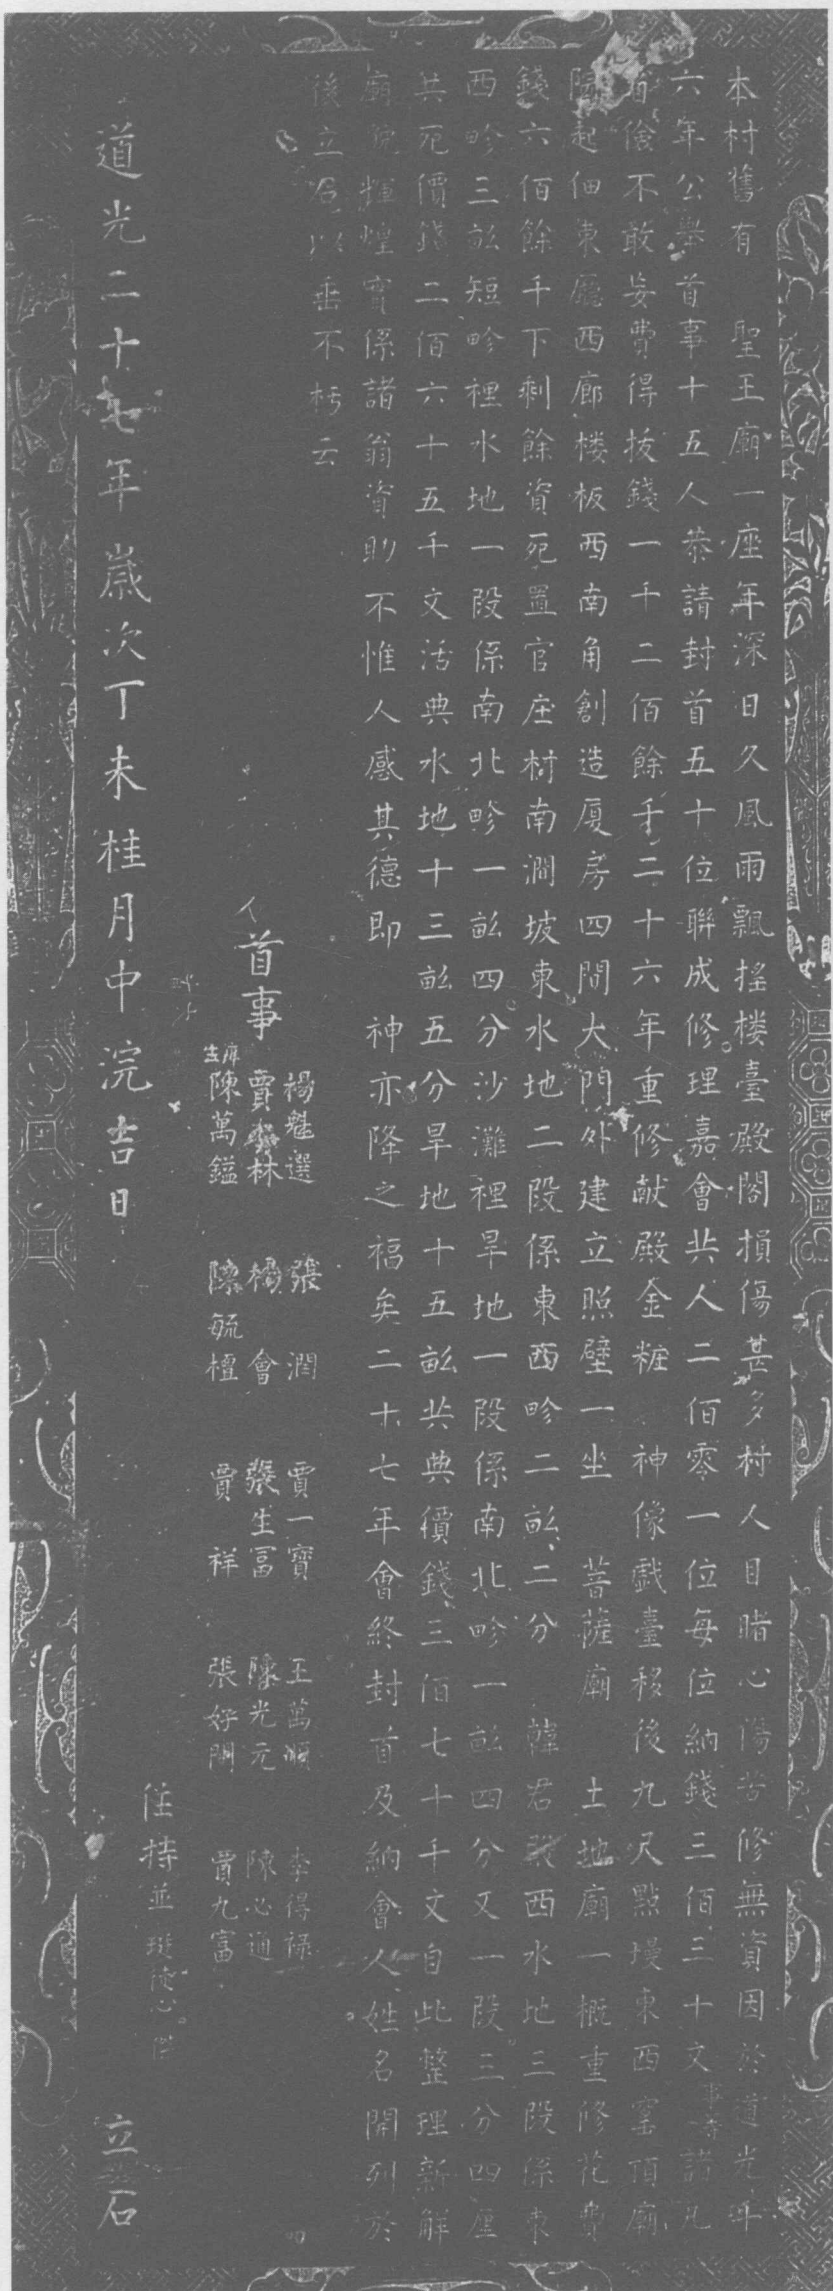 本村舊有 聖王廟一座年深日久風雨飄搖楼臺殿閣損傷甚多村人目睹心傷苦修無資因於道光
六年公舉首事十五人恭請封首五十位聯成修理嘉會共人二佰零一位每位納錢三佰三十文事 諸凡
儉不敢妄費得拔錢一千二佰餘千二十六年重修献殿金粧 神像戲臺移後九尺點墁東西窰頂廟
起佃東廳西廊楼板西南角創造厦房四間大門外建立照壁一坐 菩薩廟 土地廟一概重修花費
錢六佰餘千下剩餘資死置官庄村南澗坡東水地二段係東西畛二畝二分 韓君 西水地三段係東
西畛三畝短畛裡水地一段係南北畛一畝四分沙灘裡旱地一段係南北畛一畝四分又一段三分四厘
共死價錢二佰六十五千文活典水地十三畝五分旱地十五畝共典價錢三佰七十千文自此整理新鮮
廟貌輝煌實係諸翁資助不惟人感其德即 神亦降之福矣二十七年會終封首及納會人姓名開列於
後立石以垂不朽云
首事
楊魁選 張潤 賈一寶 王萬順 李得禄
賈 林 楊會 張生冨 陳光元 陳必通
庠生 陳萬鎰 陳毓檀 賈祥 張好問 賈九富
住持並 徒心
道光二十七年歲次丁未桂月中浣吉日 立石